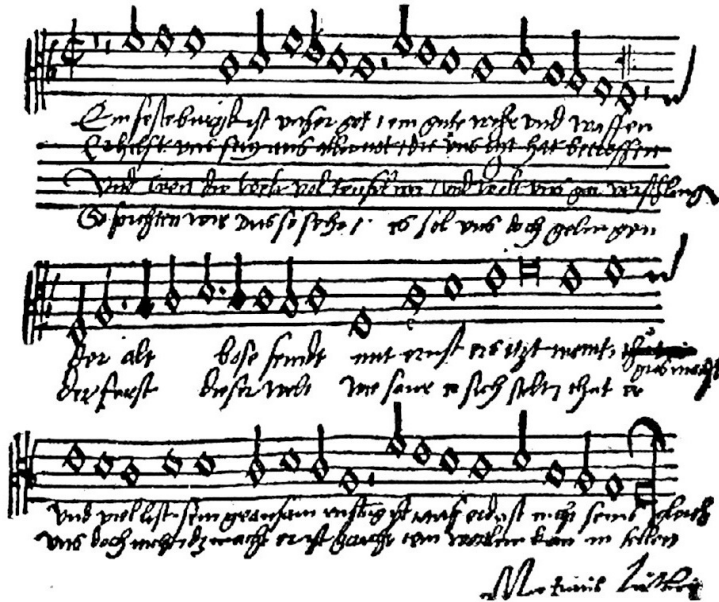 Ein feste burgk ist unser got, ein gute wehr und waffen
Er hilfft uns frey aus aller not die uns itzt hat betroffen
Und wen die welt vol teufel wer und wolt uns gar verschlingen
So furchten wir uns so sehr es sol uns doch gelingen
der alt bose feindt mit ernst ers itzt meint
gros macht
der furst dieser welt wie saur er sich stelt thut er
und viel list sein grausam rustung ist auf erd ist nicht seins gleich
uns doch nicht macht er ist gericht ein wortlein kan in fellen
Martinus Luther